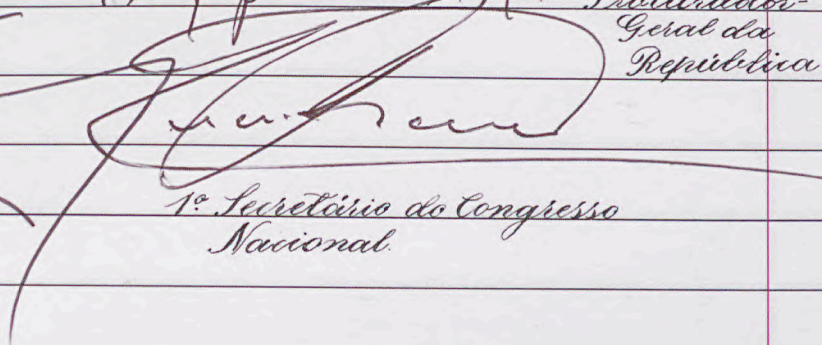 Procurador-
Geral da
República
1º Secretário do Congresso
Nacional.